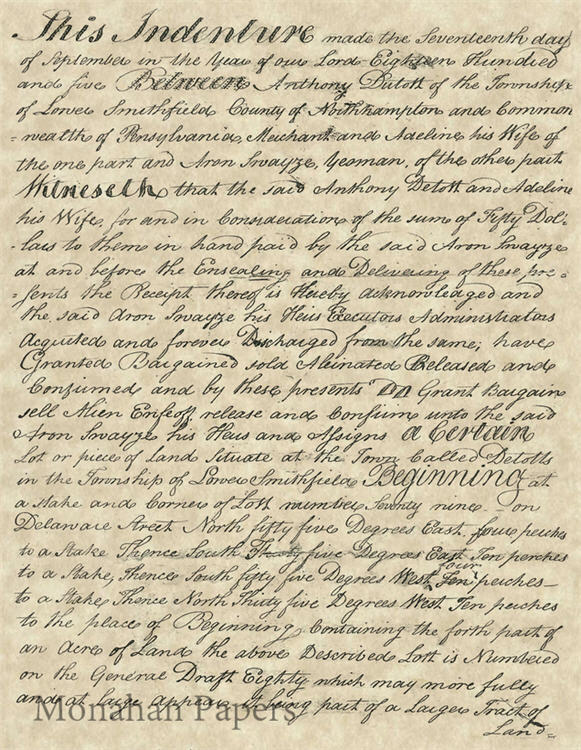 This Indenture made the Seventeenth day
of September in the Year of our Lord Eighteen Hundred
and five Between Anthony Dutott of the Township
of Lower Smithfield County of Northhampton and Common
=wealth of Pensylvania, Merchant and Adeline his Wife of
the one part and Aron Swayze, Yeoman, of the other part
Witneseth that the said Anthony Detott and Adeline
his Wife, for and in Consideration of the sum of Fifty Dol:
-lars to them in hand paid by the said Aron Swayze
at and before the Ensealing and Delivering of these pre=
=sents the Receipt thereof is Hereby acknowledged and
the said Aron Swayze his Heirs Executors Administrators
Acquited and forever Discharged from the same; have
Granted Bargained sold Aleinated Released and
Confirmed and by these presents Do Grant Bargain
sell Alien Enfeoff release and Confirm unto the said
Aron Swayze his Heirs and Assigns a Certain
Lot or piece of Land Situate at the Town Called Detotts
in the Township of Lower Smithfield Beginning at
a stake and Corner of Lott number Seventy nine - on
Delaware Street North fifty five Degrees East four perches
to a Stake Thence South Thirty five Degrees East Ten perches
four
to a Stake, Thence South fifty five Degrees West Ten perches -
to a Stake, Thence North Thirty five Degrees West Ten perches
to the place of Beginning, Containing the forth part of
an Acre of Land the above Described Lott is Numbered
on the General Draft Eighty which may more fully
and at large appear it being part of a Larger Tract of
Land=
Monahan Papers